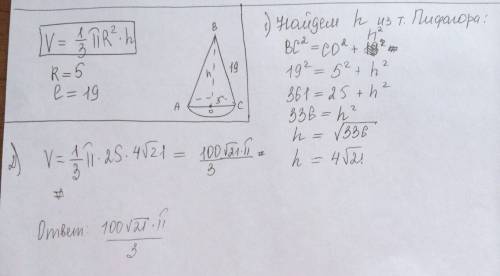 V = 1/3 πR²·h
R = 5
ℓ = 19
B
h
19
5
A
O
C
1) Найдем h из т. Пифагора:
BC² = CO² + h² =
19² = 5² + h²
361 = 25 + h²
336 = h²
h = √336
h = 4√21
2) V = 1/3 π·25·4√21 = 100√21·π/3 =
Ответ: 100√21·π/3